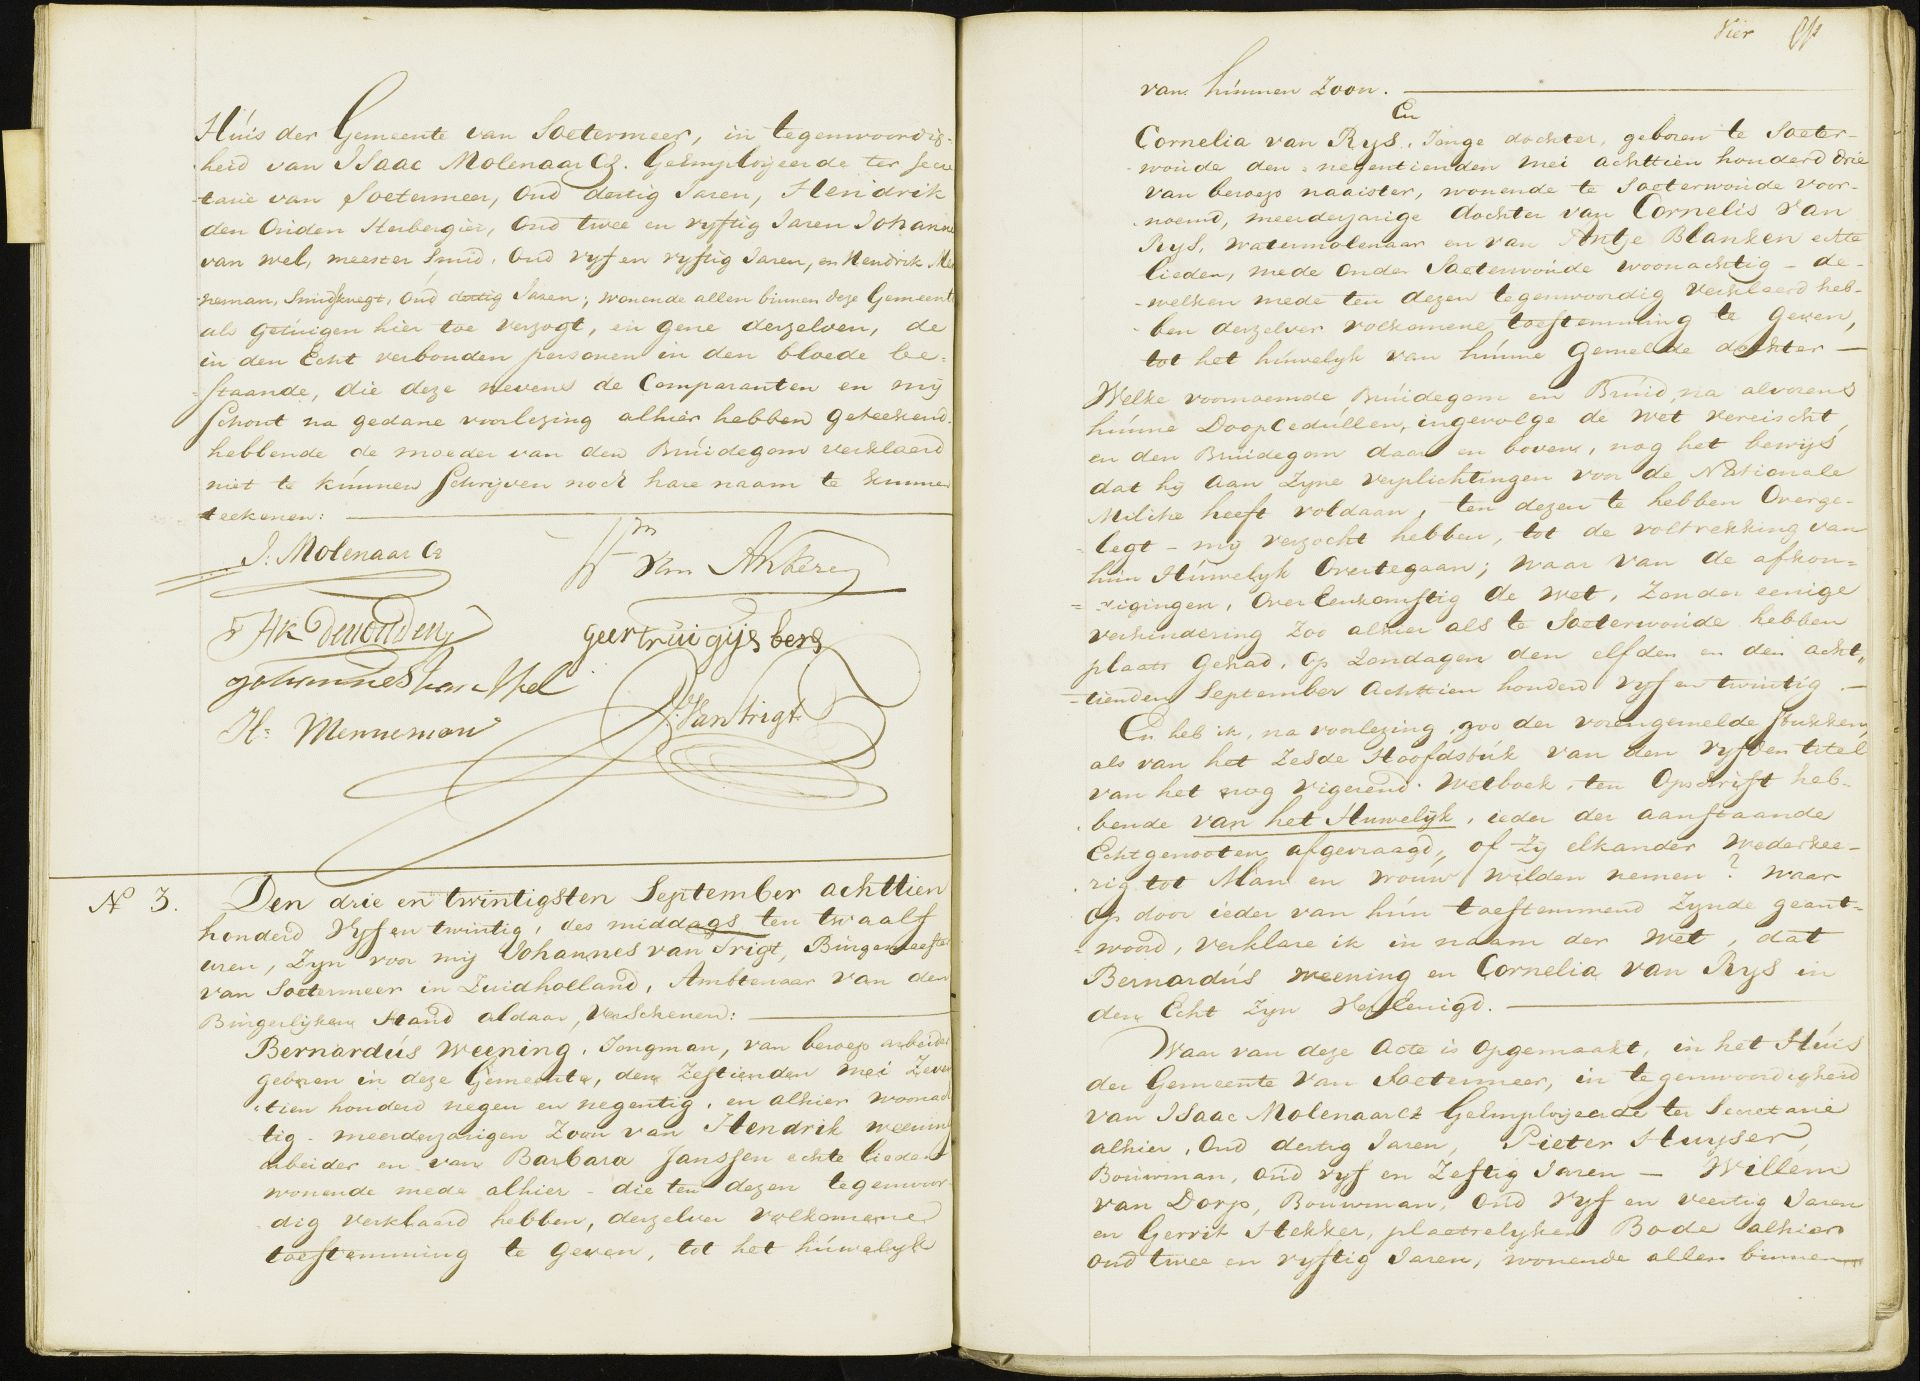 Húis der Gemeente van Soetermeer, in tegenwoordig-
heid van Isaac Molenaar Cz. Geëmploijeerde ter Secre
tarie van Soetermeer, Oud dertig Jaren, Hendrik
den Ouden Herbergier, Oud twee en vyftig Jaren Johannes
van Wel, meester Smid, Oud vyf en vyftig Jaren, en Hendrik Men
neman, Smidsknegt, Oúd dertig Jaren; wonende allen binnen deze Gemeente
als getúigen hier toe verzogt, en gene derzelven, de
in den Echt verbonden personen in den bloede be-
staande, die deze nevens de Comparanten en mij
Schout na gedane voorlezing alhier hebben geteekend.
hebbende de moeder van den Brúidegom verklaard
niet te kúnnen Schrijven noch hare naam te kunnen
teekenen:
J. Molenaar Cz
van Akkeren
Hk Den Ouden
geertrui gijsbers
Johannes van Wel
J. Van Trigt
H: Menneman
No 3. Den drie en twintigsten September achttien
honderd Vyf en twintig, des middags ten twaalf
uren, Zyn voor mij Johannes van Trigt, Búrgemeester
van Soetermeer in Zuidholland, Ambtenaar van den
Búrgerlijken Stand aldaar, Verschenen:
Bernardús Weening, Jongman, van beroep arbeider
geboren in deze Gemeente, den Zestienden Mei Zeven
tien honderd negen en negentig, en alhier woonach
tig - meerderjarigen Zoon van Hendrik Weening
arbeider en van Barbara Janssen echte lieden
wonende mede alhier - die ten dezen tegenwoor
dig verklaard hebben, derzelver volkomene
toestemming te geven, tot het húwelyk
Vier
van húnnen Zoon.
En
Cornelia van Rys, Jonge dochter, geboren te Soeter-
woúde den negentienden Mei achttien honderd drie
van beroep naaister, wonende te Soeterwoúde voor-
noemd, meerderjarige dochter van Cornelis van
Rys, watermolenaar en van Antje Blanken echte
lieden, mede onder Soeterwoúde woonachtig - de-
welken mede ten dezen tegenwoordig verklaard heb-
ben derzelver volkomene toestemming te geven,
tot het húwelyk van húnne gemelde dochter
Welke voornoemde Brúidegom en Brúid, na alvorens
húnne Doopcedúllen, ingevolge de wet vereischt,
en den Brúidegom daar en boven, nog het bewijs
dat hij aan Zyne verplichtingen voor de Nationale
Militie heeft voldaan, ten dezen te hebben Overge-
legt - mij verzocht hebben, tot de voltrekking van
hún Húwelyk Overtegaan; waar van de afkon-
digingen, Overeenkomstig de wet, Zonder eenige
verhindering Zoo alhier als te Soeterwoúde hebben
plaats gehad, Op Zondagen den elfden en den acht-
tienden September Achttien honderd vyf en twintig.
En heb ik, na voorlezing, zoo der vorengemelde stukken,
als van het Zesde Hoofdstúk van den Vyfden titel
van het nog vigerend Wetboek, ten Opschrift heb-
bende van het Húwelijk, ieder der aanstaande
Echtgenooten afgevraagd, of Zij elkander wederkee-
rig tot Man en Vrouw wilden nemen? waar
op door ieder van hún toestemmend Zynde geant-
woord, verklare ik in naam der Wet, dat
Bernardús Weening en Cornelia van Rys in
den Echt Zyn Vereenigd.
Waar van deze acte is Opgemaakt, in het Húis
der Gemeente van Soetermeer, in tegenwoordigheid
van Isaac Molenaar Cz Geëmploijeerde ter Secretarie
alhier, Oud dertig Jaren, Pieter Huyser,
Boúwman, Oúd vyf en Zestig Jaren — Willem
van Dorp, Bouwman, Oúd Vyf en veertig Jaren
en Gerrit Stekker, plaatselyken Bode alhier
Oúd twee en vyftig Jaren, wonende allen binnen